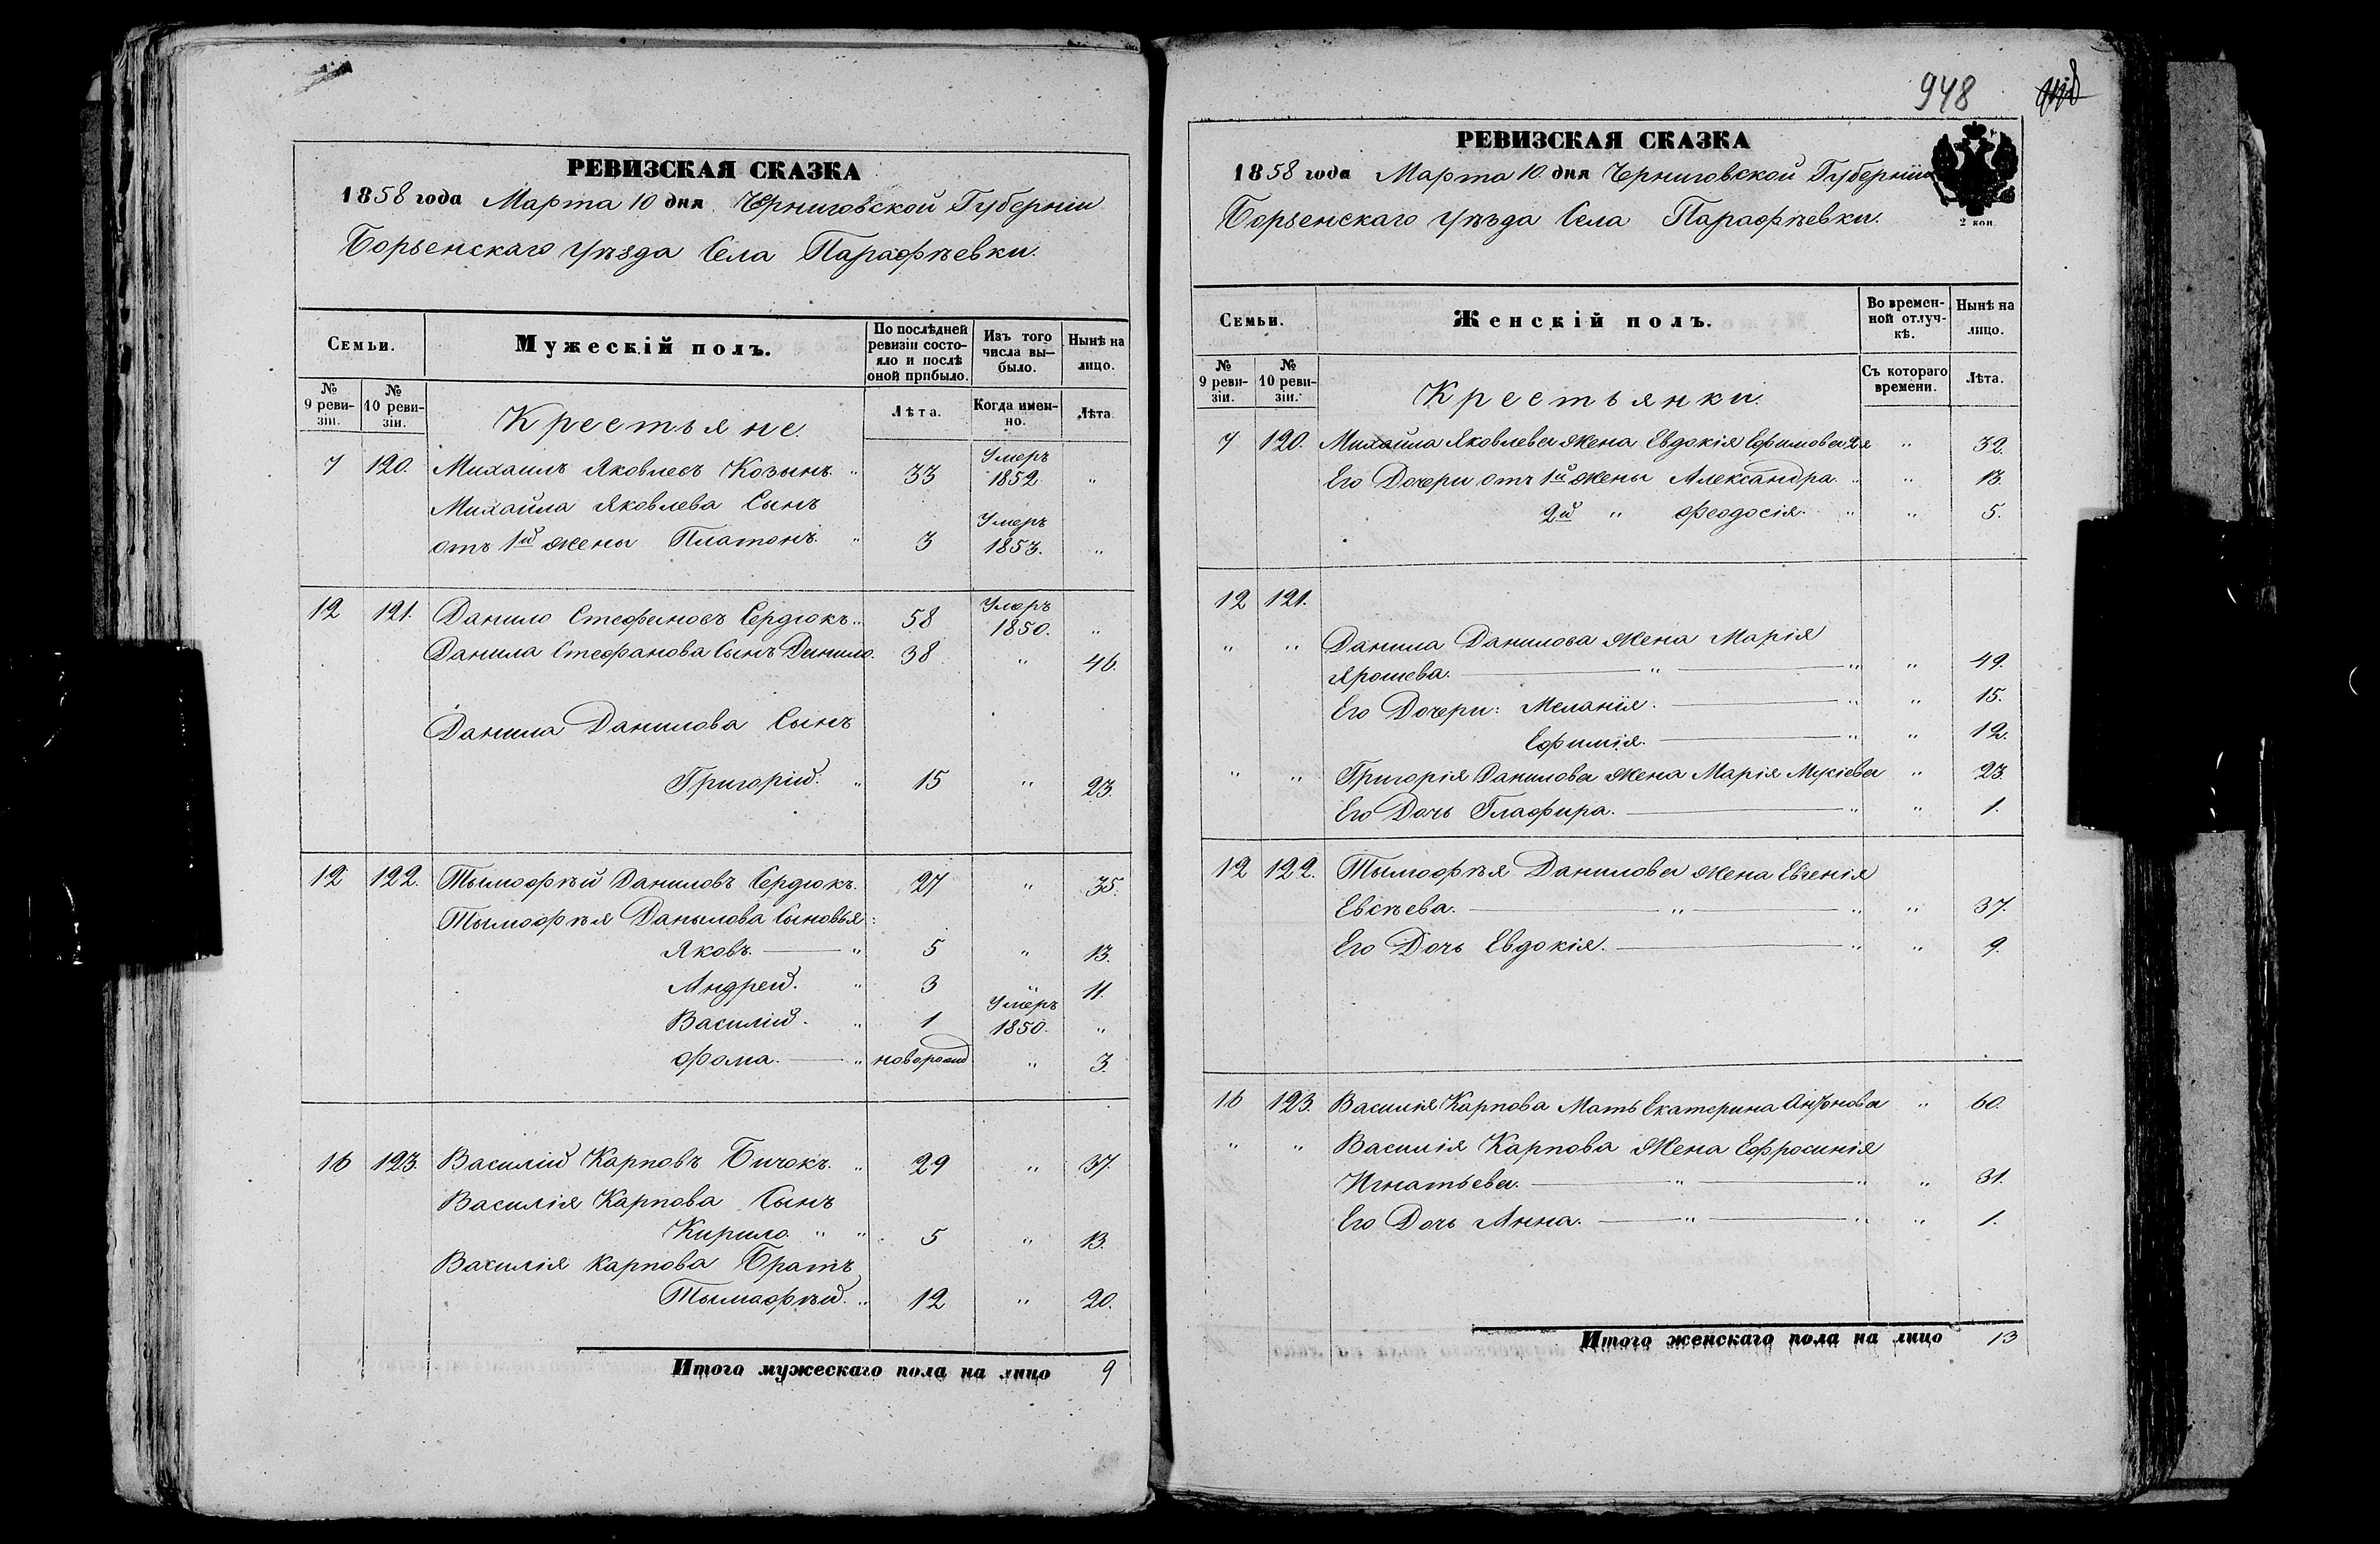 РЕВИЗСКАЯ СКАЗКА
1858 года Марта 10 дня Черниговской Губерніи
Борзенскаго Уѣзда Села Парафѣевки.
Семьи.
Мужескій полъ.
По послѣдней ревизіи состояло и послѣ оной прибыло.
Изъ того числа выбыло.
Нынѣ на лицо.
№ 9 ревизіи.
№ 10 ревизіи.
Крестьяне.
Лѣта.
Когда именно.
Лѣта.
7 120. Михаилъ Яковлевъ Козынъ. " 33 Умеръ 1852. "
Михайла Яковлева Сынъ
отъ 1й жены Платонъ. " 3 Умеръ 1853. "
12 121. Данило Стефановъ Сердюкъ. " 58 Умеръ 1850. "
Данила Стефанова Сынъ Данило. 38 " 46.
Данила Данилова Сынъ
Григорій. " 15 " 23.
12 122. Тымофѣй Даниловъ Сердюкъ. 27 " 35.
Тымофѣя Данылова Сыновья:
Яковъ. " 5 " 13.
Андрей. " 3 " 11.
Василій. " 1 Умеръ 1850. "
Фома. " новорожд " 3.
16 123. Василій Карповъ Бичокъ. " 29 " 37.
Василія Карпова Сынъ
Кирило. " " 5 " 13.
Василія Карпова Братъ
Тымофѣй. " 12 " 20.
Итого мужескаго пола на лицо 9
948
РЕВИЗСКАЯ СКАЗКА
1858 года Марта 10 дня Черниговской Губерніи
Борзенскаго Уѣзда Села Парафѣевки.
2 коп.
Семьи.
Женскій полъ.
Во временной отлучкѣ.
Нынѣ на лицо.
№ 9 ревизіи.
№ 10 ревизіи.
Крестьянки.
Съ котораго времени.
Лѣта.
7 120. Михайла Яковлева жена Евдокія Ефимова 2я " 32.
Его Дочери отъ 1й жены Александра. " " 13.
2й " Феодосія. " " 5.
12 121.
" " Данила Данилова жена Марія
Ярошева. " " " 49.
Его Дочери: Меланія. " " 15.
Ефимія. " " 12.
" " Григорія Данилова жена Марія Мусіева " 23.
Его Дочь Глафира. " " 1.
12 122. Тымофѣя Данилова жена Евгенія
Евсѣева. " " " 37.
Его Дочь Евдокія. " " 9.
16 123. Василія Карпова Мать Екатерина Антонова " 60.
" " Василія Карпова Жена Ефросинія
Игнатьева. " " " 31.
Его Дочь Анна. " " " 1.
Итого женскаго пола на лицо 13